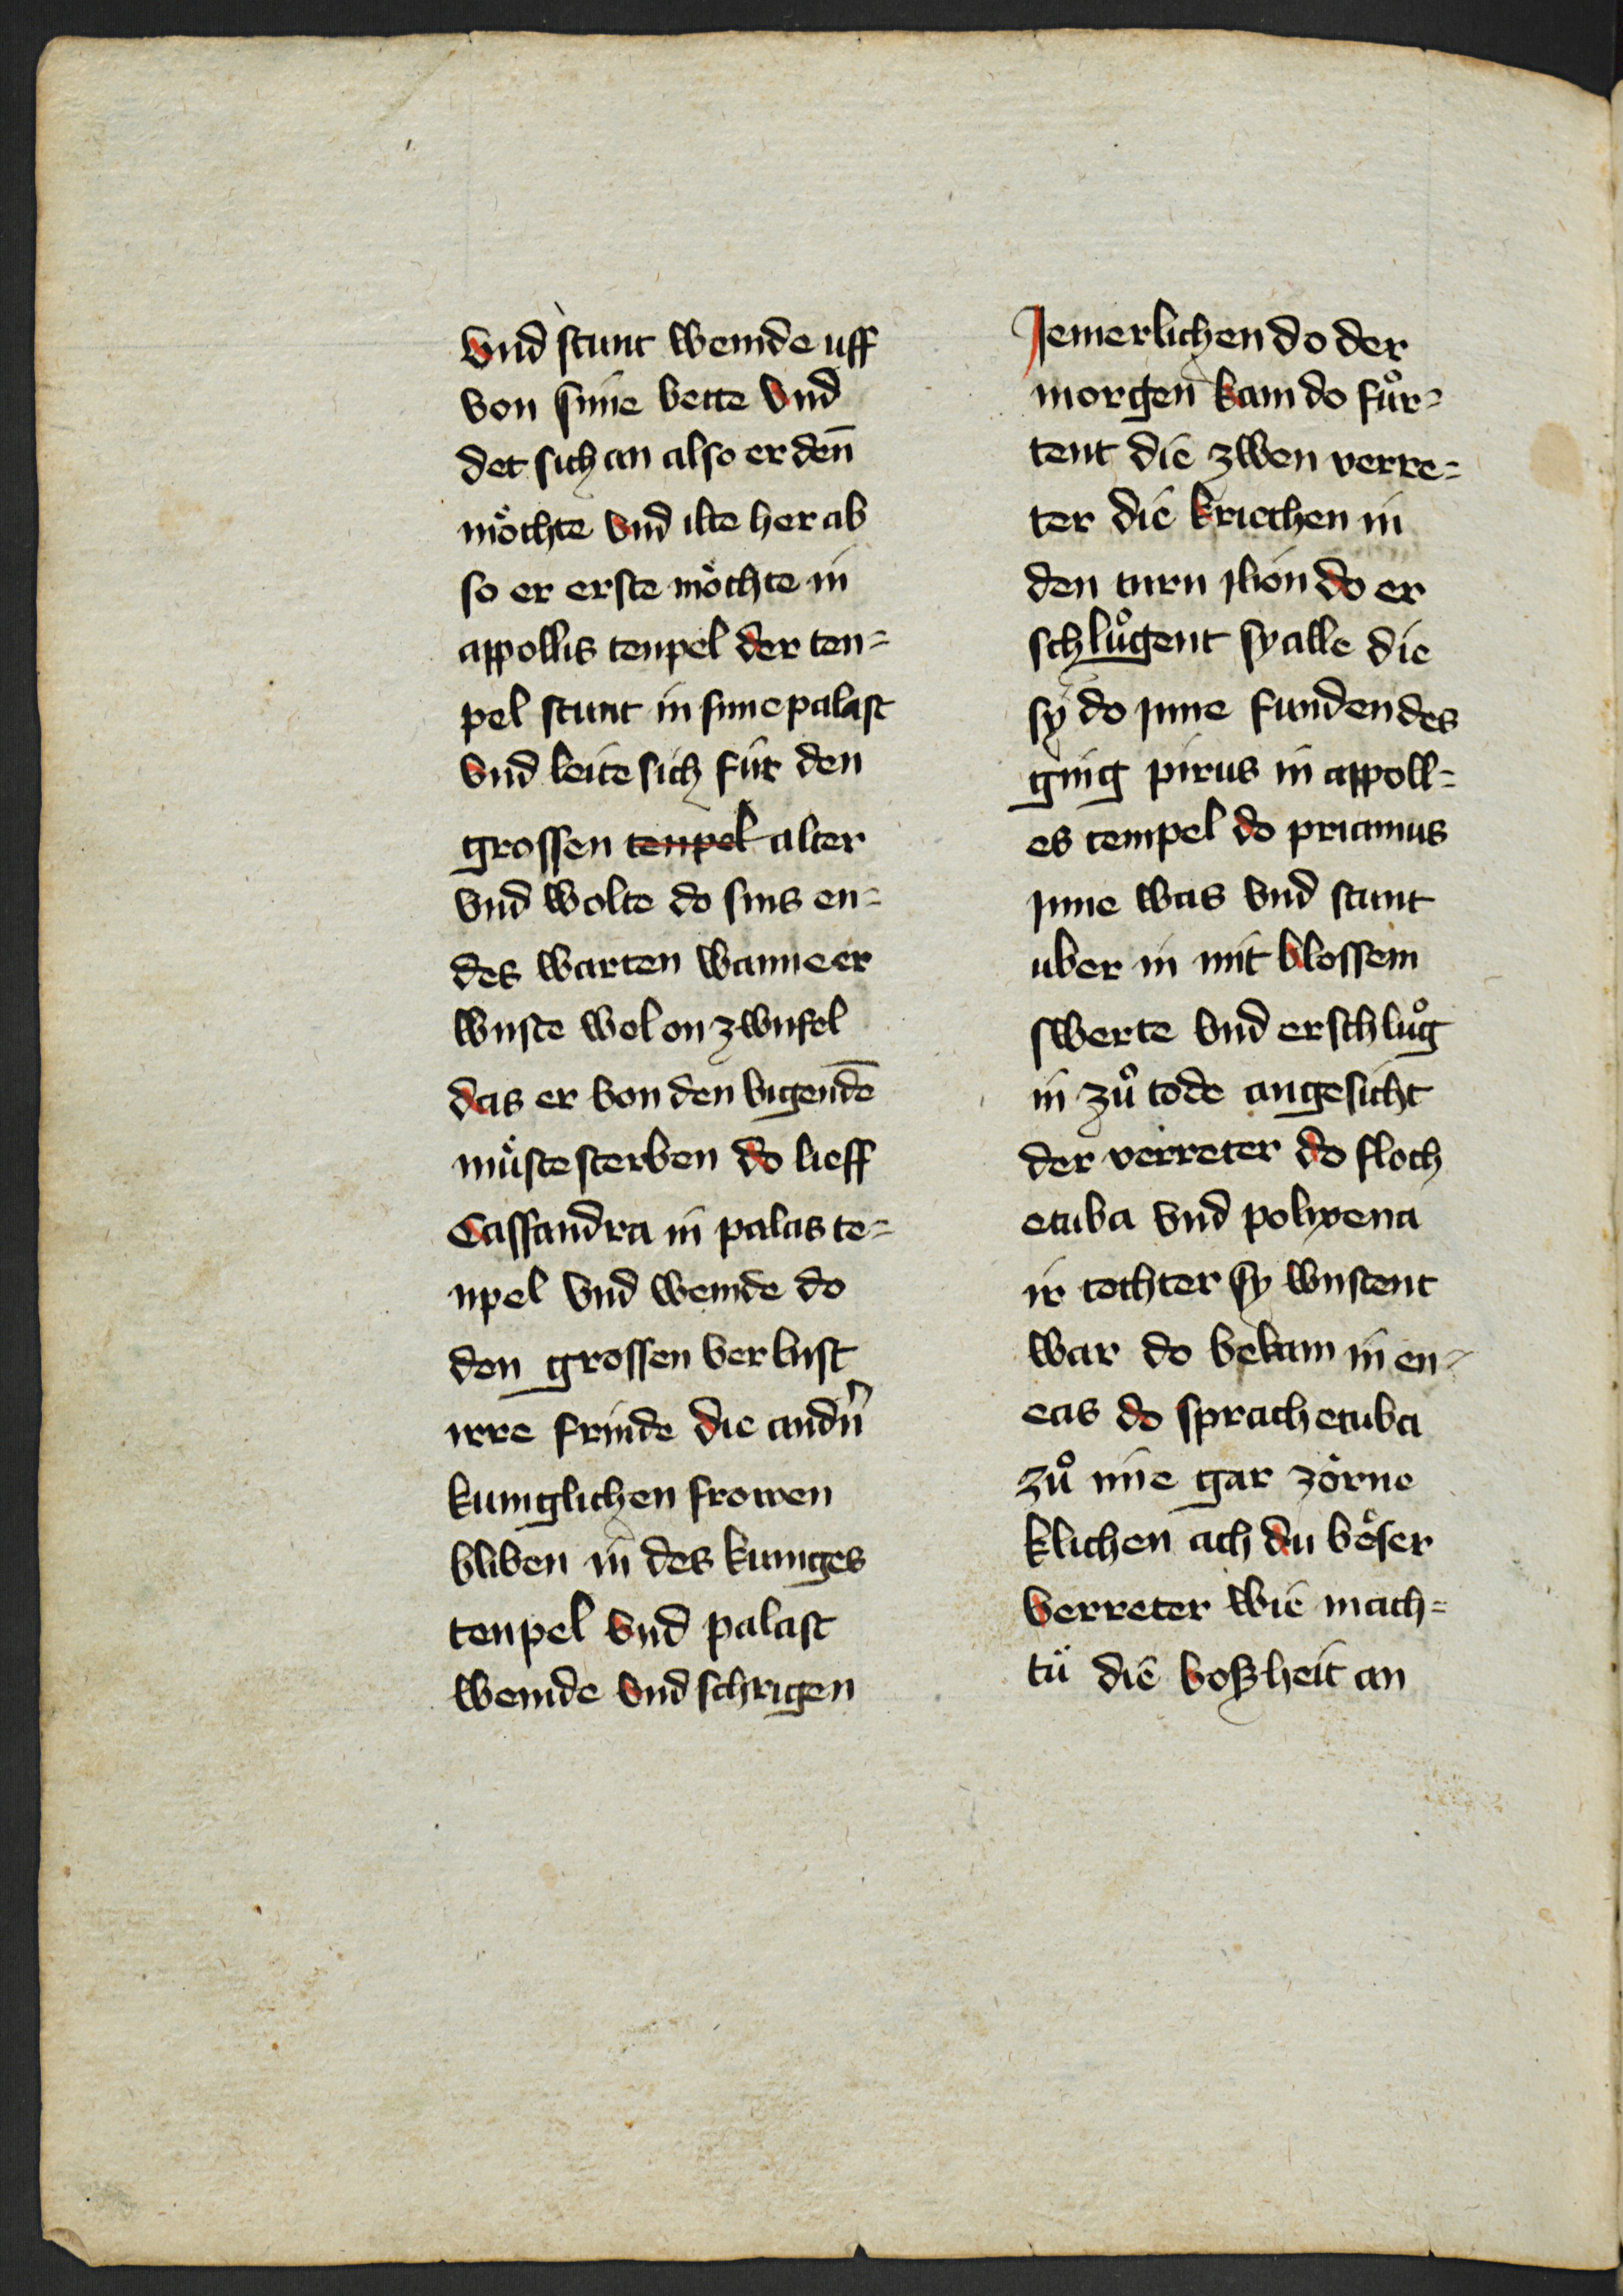 vnd stunt weinde uff
von sime bette vnd
det sich an also er den̄
moͤchte vnd ilte her ab
so er erste moͤchte in
appollis tenpel der ten=
pel stunt in sime palast
vnd leite sich fúr den
grossen tenpel alter
vnd wolte do sins en=
des warten wanne er
wuste wol on zwifel
das er von den vigendē
muͤste sterben do lieff
Cassandra in palas te=
npel vnd weinde do
den grossen verlust
irre frúnde die andn̄
kuniglichen frowen
bliben in des kuniges
tenpel vnd palast
weinde vnd schrigen
Jemerlichen do der
morgen kam do fuͦr=
tent die zwen verre=
ter die kriechen in
den turn jlion do er
schluͦgent sy alle die
sy do jnne funden des
ging pirus in appoll=
es tempel do priamus
jnne was vnd stunt
uber in mit blossem
swerte vnd erschluͦg
in zuͦ tode angesicht
der verreter do floch
ecuba vnd polixena
ir tochter sy wustent
war do bekam in en=
eas do sprach ecuba
zuͦ ime gar zörne
klichen ach du boͤser
verreter wie mach=
tu die boßheit an